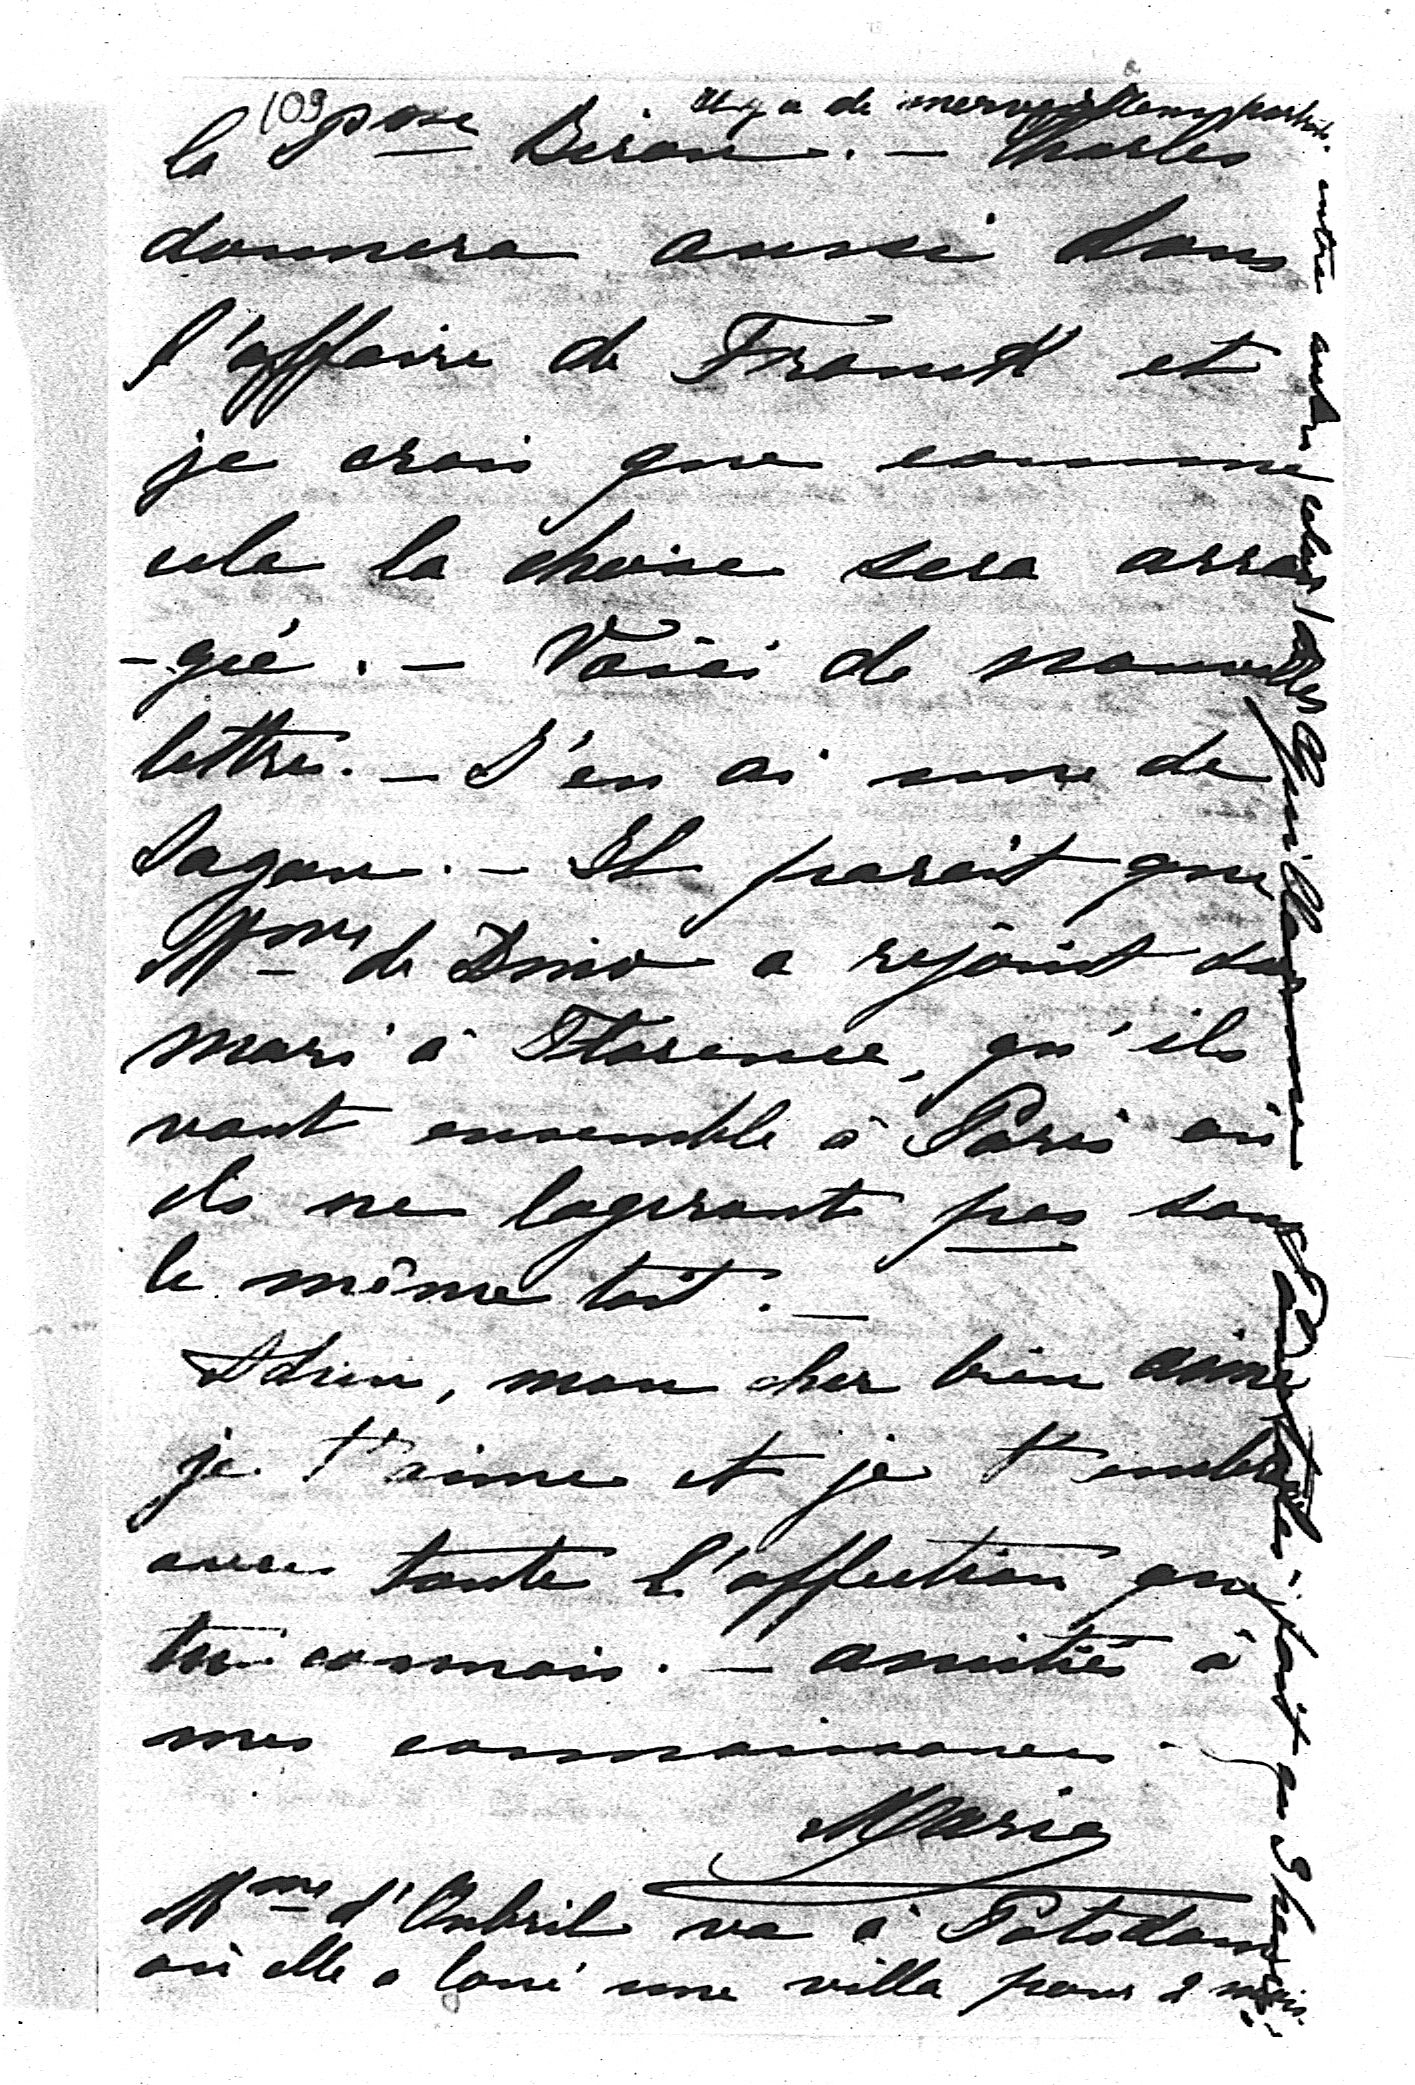 109
la Psse Biron. — Charles
donnera aussi dans
l'affaire de Franck et
je crois que comme
cela la chose sera arran
-gée. — Voici de nouvelles
lettres. — J'en ai une de
Sagan. — Il parait que
Mme de Dino a rejoint son
mari à Florence, qu'ils
vont ensemble à Paris où
ils ne logeront pas sous
le même toit. —
Adieu, mon cher bien aimé
je t'aime et je t'embrasse
avec toute l'affection que
tu connais. — amitiés à
mes connaissances.
Marie
Mme d'Oubril va à Potsdam
où elle a loué une villa pour 2 mois.
Il y a de merveilleux portraits entre autres